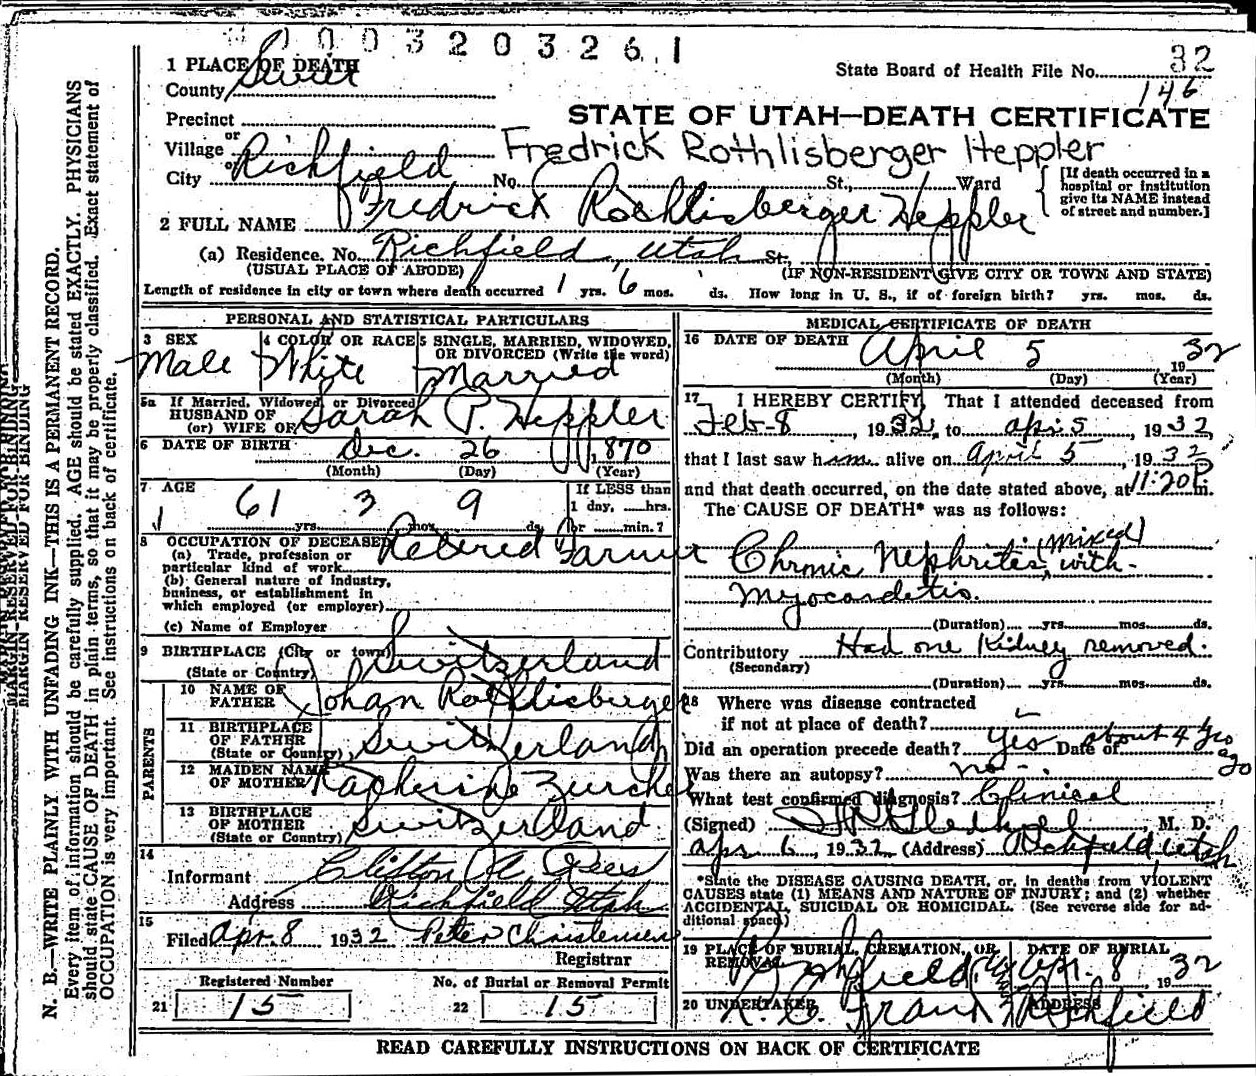 0003203261
1 PLACE OF DEATH
County Sevier
State Board of Health File No. 32
146
STATE OF UTAH—DEATH CERTIFICATE
Precinct
or
Village
or
City Richfield No. St., Ward
Fredrick Rothlisberger Heppler
[If death occurred in a hospital or institution give its NAME instead of street and number.]
2 FULL NAME Fredrick Rothlisberger Heppler
(a) Residence. No. Richfield, Utah St.,
(USUAL PLACE OF ABODE) (IF NON-RESIDENT GIVE CITY OR TOWN AND STATE)
Length of residence in city or town where death occurred 1 yrs. 6 mos. ds. How long in U. S., if of foreign birth? yrs. mos. ds.
PERSONAL AND STATISTICAL PARTICULARS
3 SEX 4 COLOR OR RACE 5 SINGLE, MARRIED, WIDOWED, OR DIVORCED (Write the word)
Male White Married
5a If Married, Widowed, or Divorced
HUSBAND OF
(or) WIFE OF Sarah P. Heppler
6 DATE OF BIRTH Dec. 26 1870
(Month) (Day) (Year)
7 AGE 61 yrs. 3 mos. 9 ds.
If LESS than
1 day, hrs.
or min.?
8 OCCUPATION OF DECEASED
(a) Trade, profession or
particular kind of work Retired Farmer
(b) General nature of industry,
business, or establishment in
which employed (or employer)
(c) Name of Employer
9 BIRTHPLACE (City or town) Switzerland
(State or Country)
PARENTS
10 NAME OF FATHER Johan Rothlisberger
11 BIRTHPLACE OF FATHER (State or Country) Switzerland
12 MAIDEN NAME OF MOTHER Katherine Zurcher
13 BIRTHPLACE OF MOTHER (State or Country) Switzerland
14
Informant Clifton
Address Richfield Utah
15
Filed Apr. 8 1932 Peter Christensen
Registrar
Registered Number
21 15
No. of Burial or Removal Permit
22 15
MEDICAL CERTIFICATE OF DEATH
16 DATE OF DEATH April 5 1932
(Month) (Day) (Year)
17 I HEREBY CERTIFY, That I attended deceased from
Feb-8, 1932, to Apr 5, 1932,
that I last saw him alive on April 5, 1932
and that death occurred, on the date stated above, at 11:20 P. m.
The CAUSE OF DEATH* was as follows:
Chronic Nephritis (mixed), with
Myocarditis.
(Duration) yrs. mos. ds.
Contributory Had one Kidney removed.
(Secondary)
(Duration) yrs. mos. ds.
18 Where was disease contracted
if not at place of death?
Did an operation precede death? Yes Date of about 4 yrs ago
Was there an autopsy? no
What test confirmed diagnosis? Clinical
(Signed) M. D.
Apr 6, 1932 (Address) Richfield, Utah
*State the DISEASE CAUSING DEATH, or, in deaths from VIOLENT
CAUSES state (1) MEANS AND NATURE OF INJURY; and (2) whether
ACCIDENTAL, SUICIDAL OR HOMICIDAL. (See reverse side for ad-
ditional space)
19 PLACE OF BURIAL, CREMATION, OR REMOVAL DATE OF BURIAL
Richfield, Apr. 8, 1932
20 UNDERTAKER ADDRESS
Richfield
READ CAREFULLY INSTRUCTIONS ON BACK OF CERTIFICATE
MARGIN RESERVED FOR BINDING
N. B.—WRITE PLAINLY WITH UNFADING INK—THIS IS A PERMANENT RECORD.
Every item of information should be carefully supplied. AGE should be stated EXACTLY. PHYSICIANS
should state CAUSE OF DEATH in plain terms, so that it may be properly classified. Exact statement of
OCCUPATION is very important. See instructions on back of certificate.